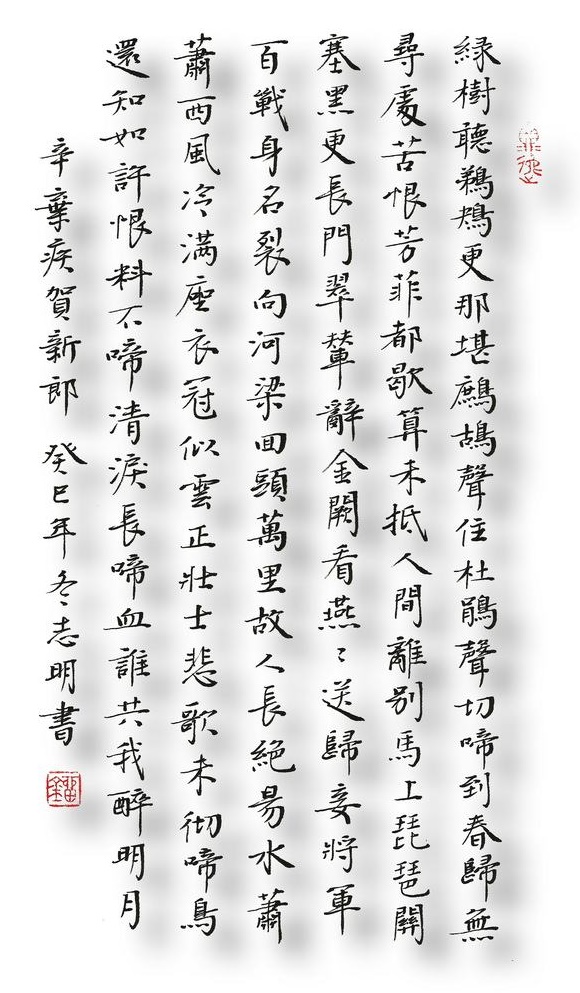 緑樹聽鵜鴂更那堪鷓鴣聲住杜鵑聲切啼到春歸無
尋處苦恨芳菲都歇算未抵人間離别馬上琵琶關
塞黑更長門翠輦辭金闕看燕〻送歸妾將軍
百戰身名裂向河梁回頭萬里故人長絶易水蕭
蕭西風冷滿座衣冠似雪正壯士悲歌未徹啼鳥
還知如許恨料不啼清淚長啼血誰共我醉明月
辛棄疾賀新郎 癸巳年冬志明書